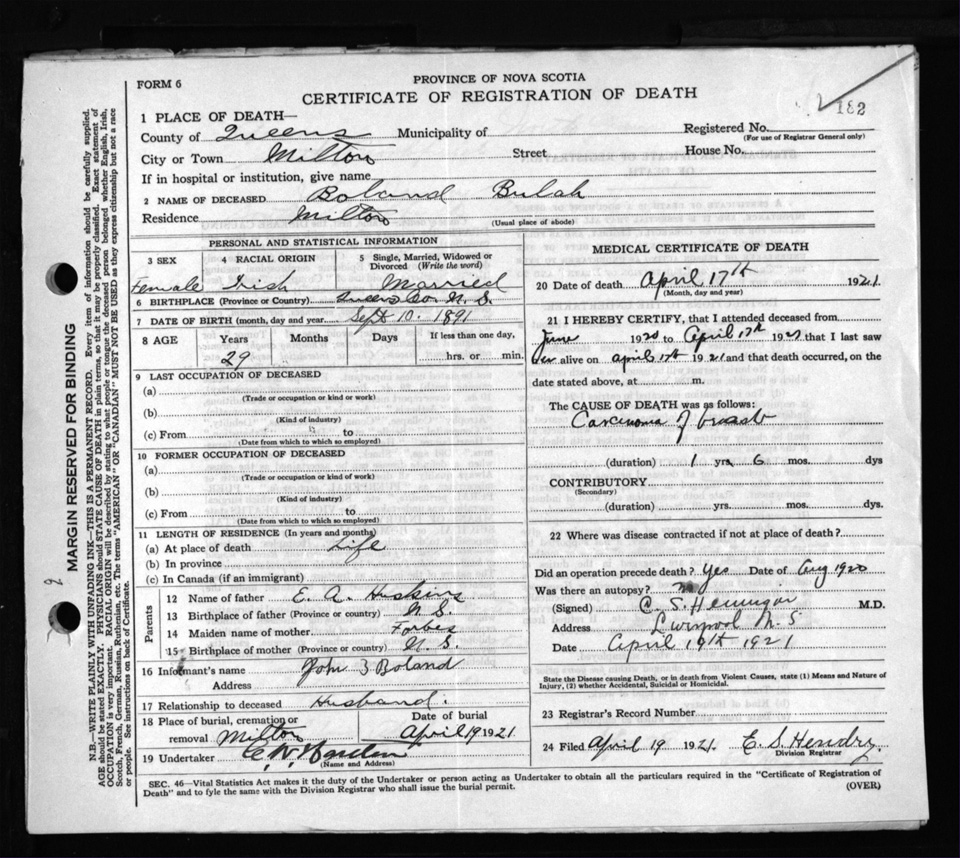 PROVINCE OF NOVA SCOTIA
FORM 6
CERTIFICATE OF REGISTRATION OF DEATH
182
1 PLACE OF DEATH—
County of Queens Municipality of Registered No.
(For use of Registrar General only)
City or Town Milton Street House No.
If in hospital or institution, give name
2 NAME OF DECEASED Boland Bulah
Residence Milton (Usual place of abode)
PERSONAL AND STATISTICAL INFORMATION
3 SEX 4 RACIAL ORIGIN 5 Single, Married, Widowed or Divorced (Write the word)
Female Irish Married
6 BIRTHPLACE (Province or Country) Queens Co. N. S.
7 DATE OF BIRTH (month, day and year) Sept 10. 1891
8 AGE Years Months Days If less than one day,
29 hrs. or min.
9 LAST OCCUPATION OF DECEASED
(a)
(Trade or occupation or kind or work)
(b)
(Kind of industry)
(c) From to
(Date from which to which so employed)
10 FORMER OCCUPATION OF DECEASED
(a)
(Trade or occupation or kind of work)
(b)
(Kind of industry)
(c) From to
(Date from which to which so employed)
11 LENGTH OF RESIDENCE (In years and months)
(a) At place of death Life
(b) In province
(c) In Canada (if an immigrant)
Parents
12 Name of father E. A. Huskins
13 Birthplace of father (Province or country) N. S.
14 Maiden name of mother Forbes
15 Birthplace of mother (Province or country) N. S.
16 Informant's name John Boland
Address
17 Relationship to deceased Husband.
18 Place of burial, cremation or Date of burial
removal Milton April 19 1921.
19 Undertaker
(Name and Address)
MEDICAL CERTIFICATE OF DEATH
20 Date of death April 17th 1921.
(Month, day and year)
21 I HEREBY CERTIFY, that I attended deceased from
June 1920 to April 17th 1921 that I last saw
her alive on April 17th 1921 and that death occurred, on the
date stated above, at m.
The CAUSE OF DEATH was as follows:
Carcinoma of breast
(duration) 1 yrs. 6 mos. dys
CONTRIBUTORY
(Secondary)
(duration) yrs. mos. dys.
22 Where was disease contracted if not at place of death?
Did an operation precede death? Yes Date of Aug 1920
Was there an autopsy? no
(Signed) C. S. Hennigar M.D.
Address Liverpool N. S
Date April 19th 1921
State the Disease causing Death, or in death from Violent Causes, state (1) Means and Nature of
Injury, (2) whether Accidental, Suicidal or Homicidal.
23 Registrar's Record Number
24 Filed April 19 1921. E. S. Hendry
Division Registrar
SEC. 46—Vital Statistics Act makes it the duty of the Undertaker or person acting as Undertaker to obtain all the particulars required in the "Certificate of Registration of
Death" and to fyle the same with the Division Registrar who shall issue the burial permit. (OVER)
MARGIN RESERVED FOR BINDING
N.B.—WRITE PLAINLY WITH UNFADING INK—THIS IS A PERMANENT RECORD. Every item of information should be carefully supplied.
AGE should be stated EXACTLY. PHYSICIANS should STATE CAUSE OF DEATH in plain terms, so that it may be properly classified. Exact statement of
OCCUPATION is very important. RACIAL ORIGIN will be described by stating to what people or tongue the deceased person belonged whether English, Irish,
Scotch, French, German, Russian, Ruthenian, etc. The terms "AMERICAN" OR "CANADIAN" MUST NOT BE USED as they express citizenship but not a race
or people. See instructions on back of Certificate.